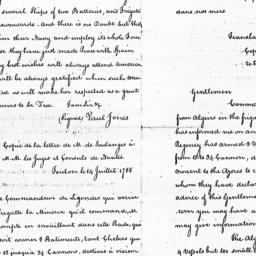 several Ships of two Batteries, and Frigate
downwards. And there is no Doubt but they
their Navy and employ its whole Force
se they have just made Peace with Spain
my best wishes will always attend America
will be always gratified when such mea-
as will make her respected as a great
to be Free. I am Sir &c
(Signed) Paul Jones
Copie de la lettre de M. de Soulanges à
M.M. les Juges et Consuls de Nantes
Toulon le 14 Juillet 1785
Commandeur de Ligondes qui arrive
fregatte la Minerve qu'il commande, M
en mouillant dans cette Rade, que
armer 8 Batiments, tant Chebecs que
18 jusqu'à 34 Cannons, destinés à croiser
dans nos mers
Transla
Copy
to t
Gentlemen
Comm
from Algiers in the frig
has informed me on an
Regency has armed 8 V
from 18 to 34 Cannon, d
Vincent to the Azores to c
whom they have declar
advice of this Gentlemen
cern you may have a
may give information
The Alg
9 Vessels but too small